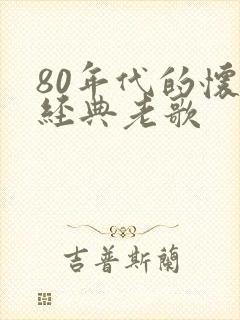 80年代的懷
經典老歌
吉普斯蘭